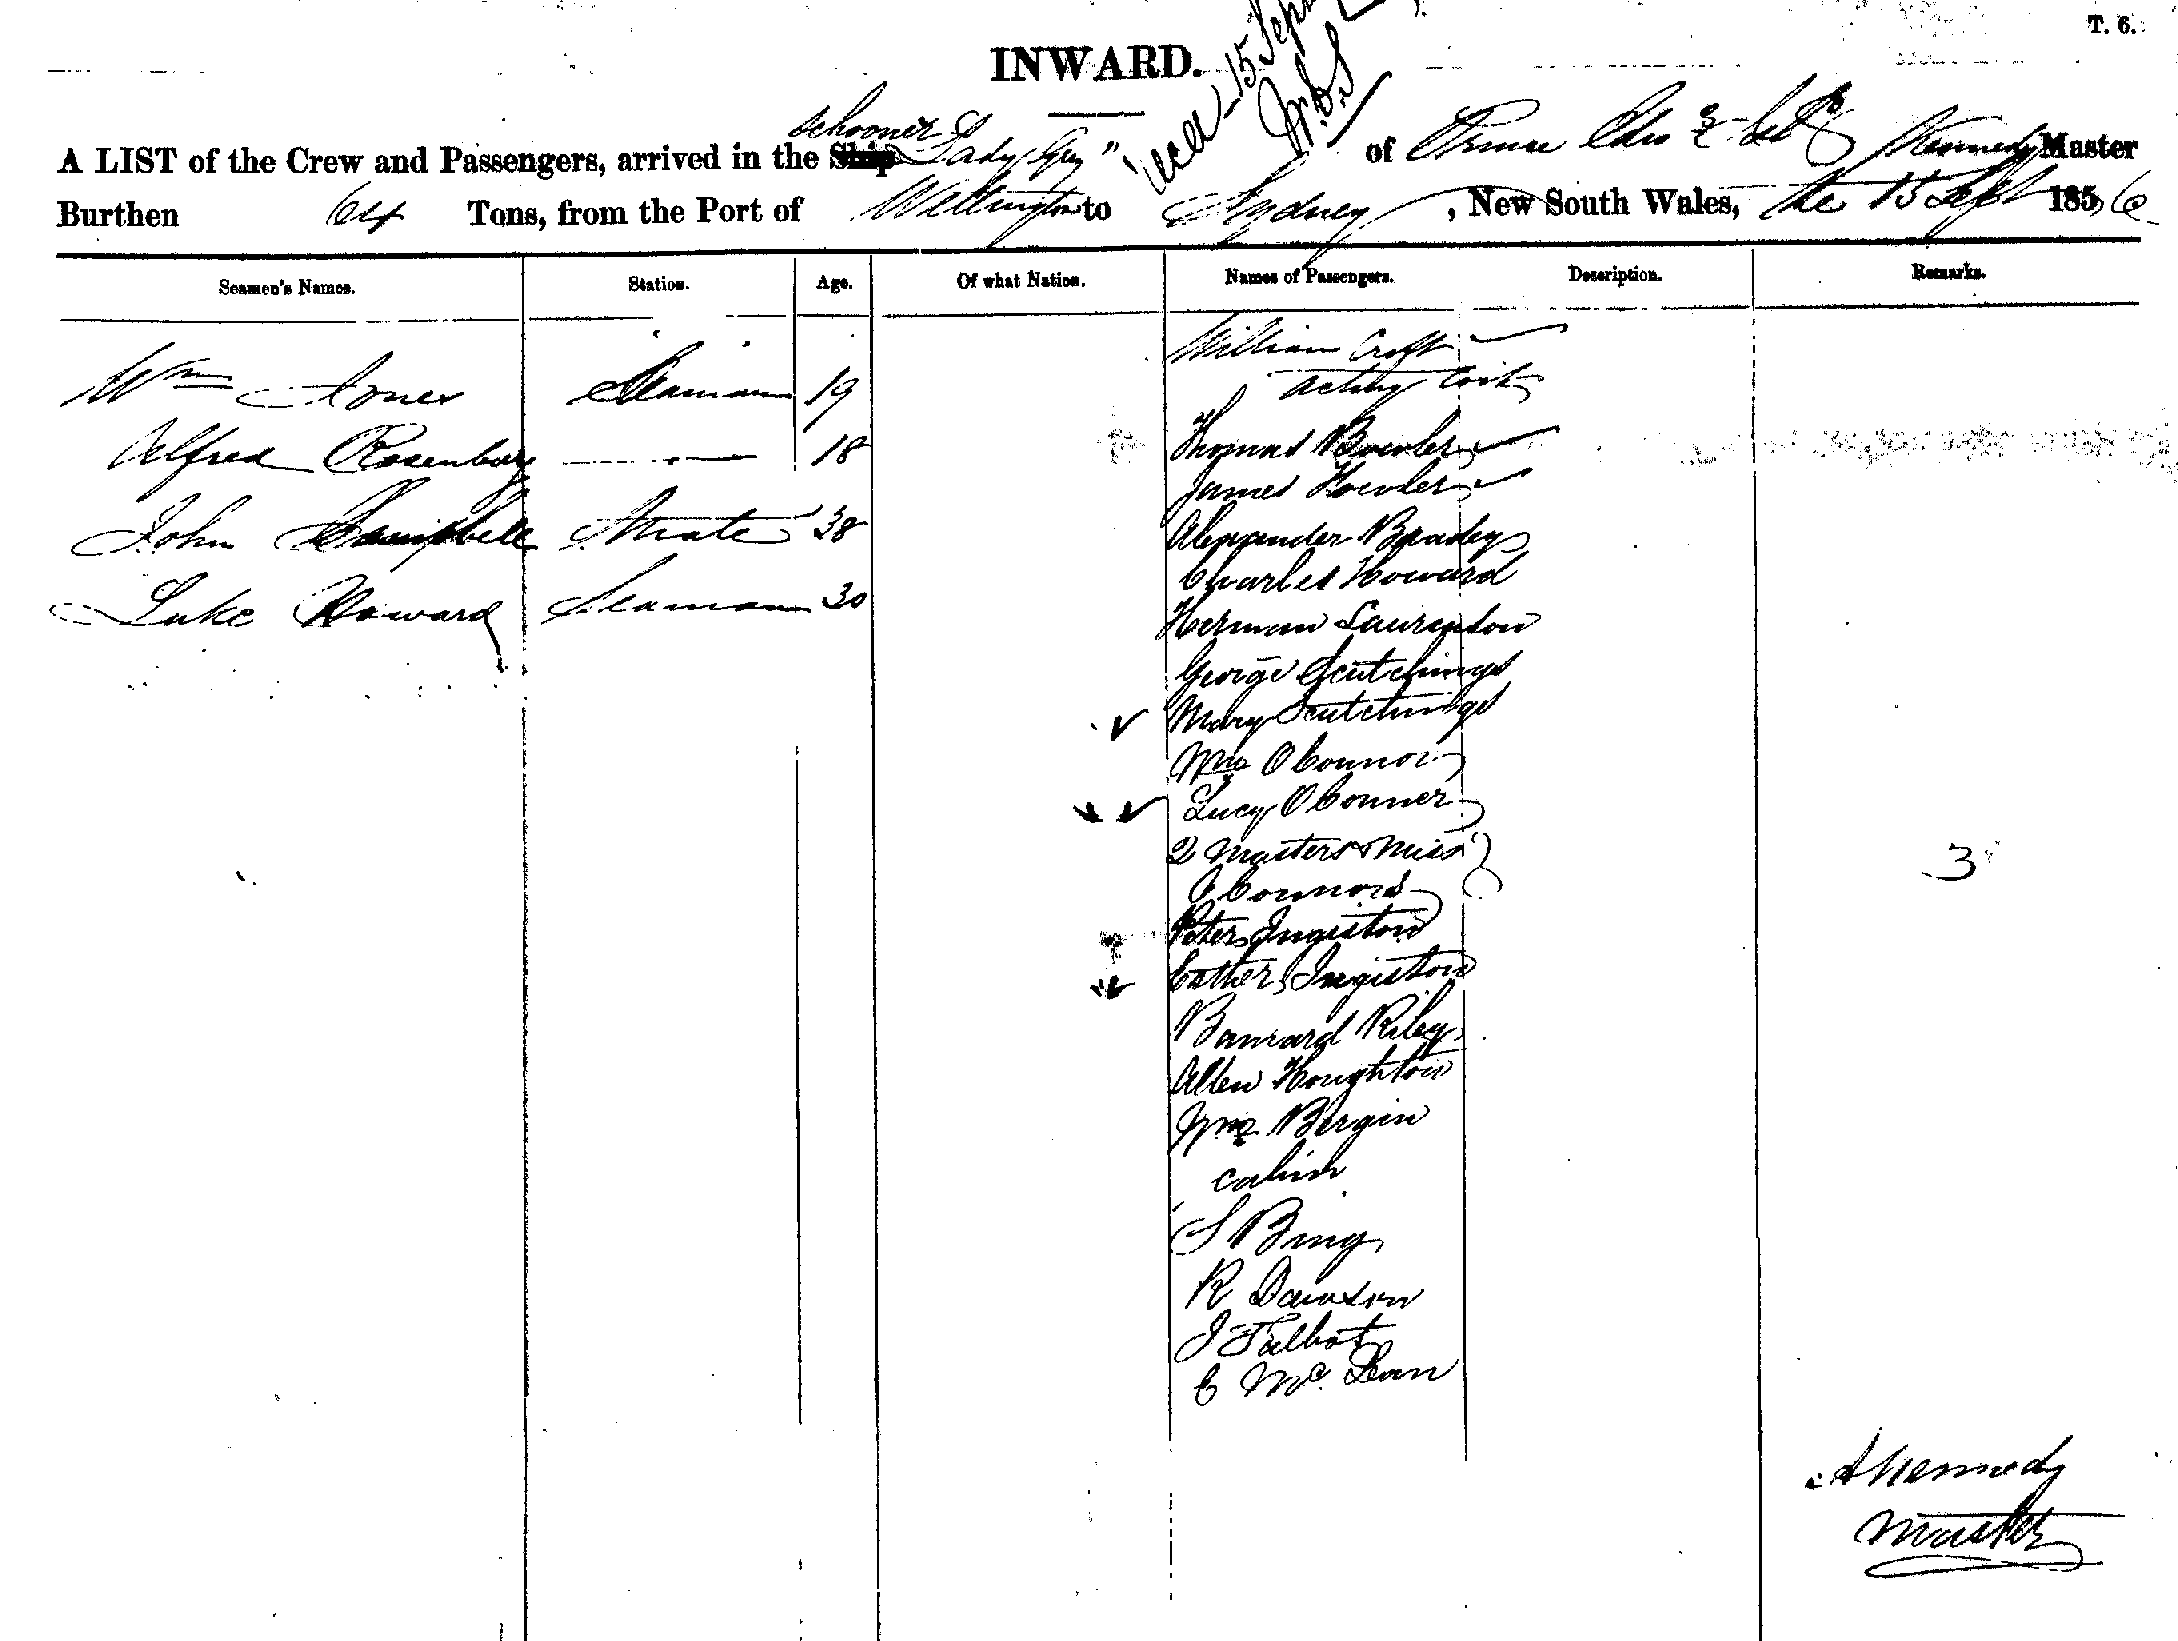 T. 6.
INWARD.
15 Sept
schooner
A LIST of the Crew and Passengers, arrived in the Ship "Lady Grey" of Kennedy Master
Burthen 64 Tons, from the Port of Wellington to Sydney, New South Wales, the 15 Sept 1856
Seamen's Names. Station. Age. Of what Nation. Names of Passengers. Description. Remarks.
William Croft
acting Cook
Wm Jones Seaman 19
Alfred Rosenburg 18
Thomas Bowler
James Howler
John Campbell Mate 38
Alexander Brady
Charles Howard
Luke Howard Seaman 30
Herman
George Scutchings
Mary Scutchings
Wm O Connor
Lucy O Conner
2 Masters & Miss
O Connors
3
Peter Ingiston
Esther Ingiston
Barnard Riley
Allen Houghton
Wm Bergin
cabin
S Bing
R Dawson
J Talbot
C Mc. Lean
A Kennedy
Master